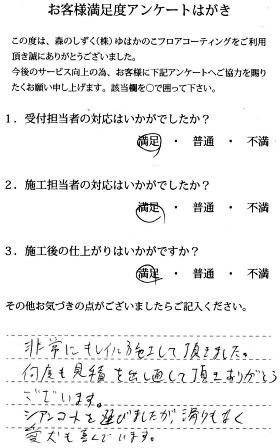 お客様満足度アンケートはがき
この度は、森のしずく(株)ゆはかのこフロアコーティングをご利用
頂き誠にありがとうございました。
今後のサービス向上の為、お客様に下記アンケートへご協力を賜り
たくお願い申し上げます。該当欄を○で囲って下さい。
1．受付担当者の対応はいかがでしたか？
満足 ・ 普通 ・ 不満
2．施工担当者の対応はいかがでしたか？
満足 ・ 普通 ・ 不満
3．施工後の仕上がりはいかがですか？
満足 ・ 普通 ・ 不満
その他お気づきの点がございましたらご記入ください。
非常にキレイに施工して頂きました。
何度も見積を出し直して頂きありがとう
ございます。
シアンコートを選びましたが、滑りもなく
愛犬も喜んでいます。